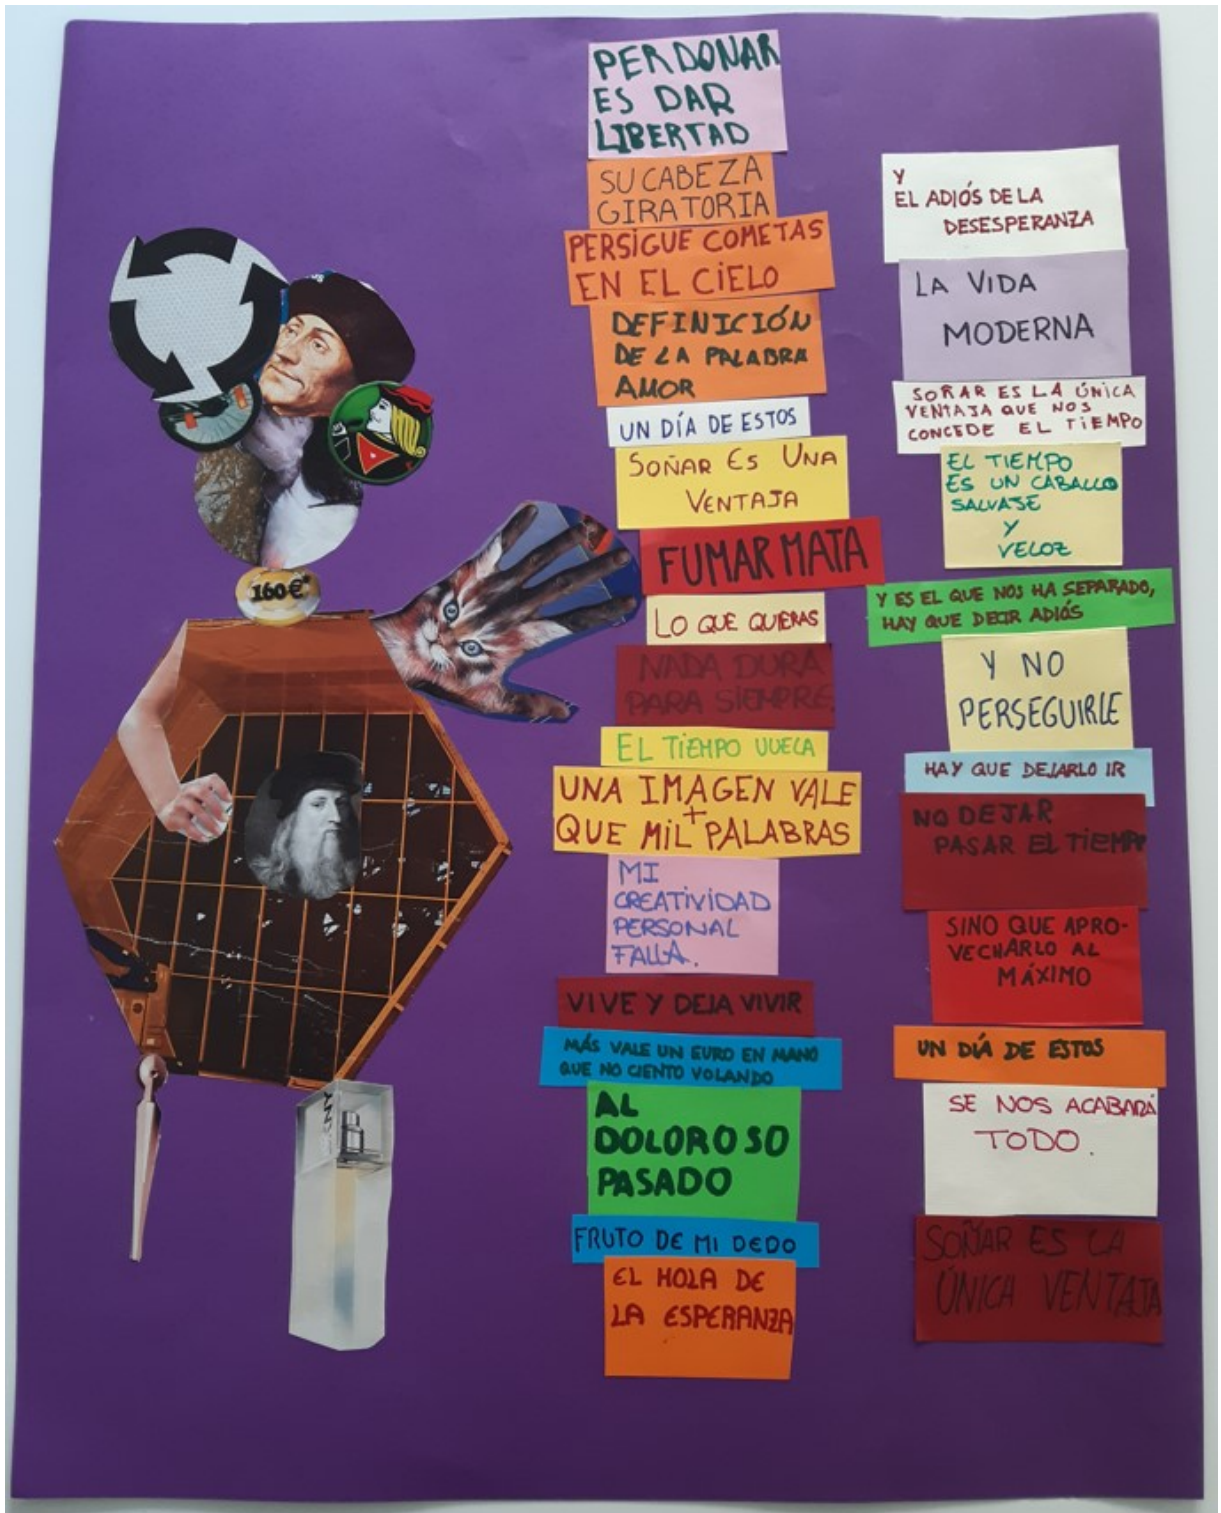 PERDONAR
ES DAR
LIBERTAD
SU CABEZA
GIRATORIA
PERSIGUE COMETAS
EN EL CIELO
DEFINICIÓN
DE LA PALABRA
AMOR
UN DÍA DE ESTOS
SOÑAR ES UNA
VENTAJA
FUMAR MATA
LO QUE QUIERAS
NADA DURA
PARA SIEMPRE.
EL TIEMPO VUELA
UNA IMAGEN VALE
+
QUE MIL PALABRAS
MI
CREATIVIDAD
PERSONAL
FALLA.
VIVE Y DEJA VIVIR
MÁS VALE UN EURO EN MANO
QUE NO CIENTO VOLANDO
AL
DOLOROSO
PASADO
FRUTO DE MI DEDO
EL HOLA DE
LA ESPERANZA
Y
EL ADIÓS DE LA
DESESPERANZA
LA VIDA
MODERNA
SOÑAR ES LA ÚNICA
VENTAJA QUE NOS
CONCEDE EL TIEMPO
EL TIEMPO
ES UN CABALLO
SALVAJE
Y
VELOZ
Y ES EL QUE NOS HA SEPARADO,
HAY QUE DECIR ADIÓS
Y NO
PERSEGUIRLE
HAY QUE DEJARLO IR
NO DEJAR
PASAR EL TIEMPO
SINO QUE APRO-
VECHARLO AL
MÁXIMO
UN DÍA DE ESTOS
SE NOS ACABARÁ
TODO.
SOÑAR ES LA
ÚNICA VENTAJA
160€*